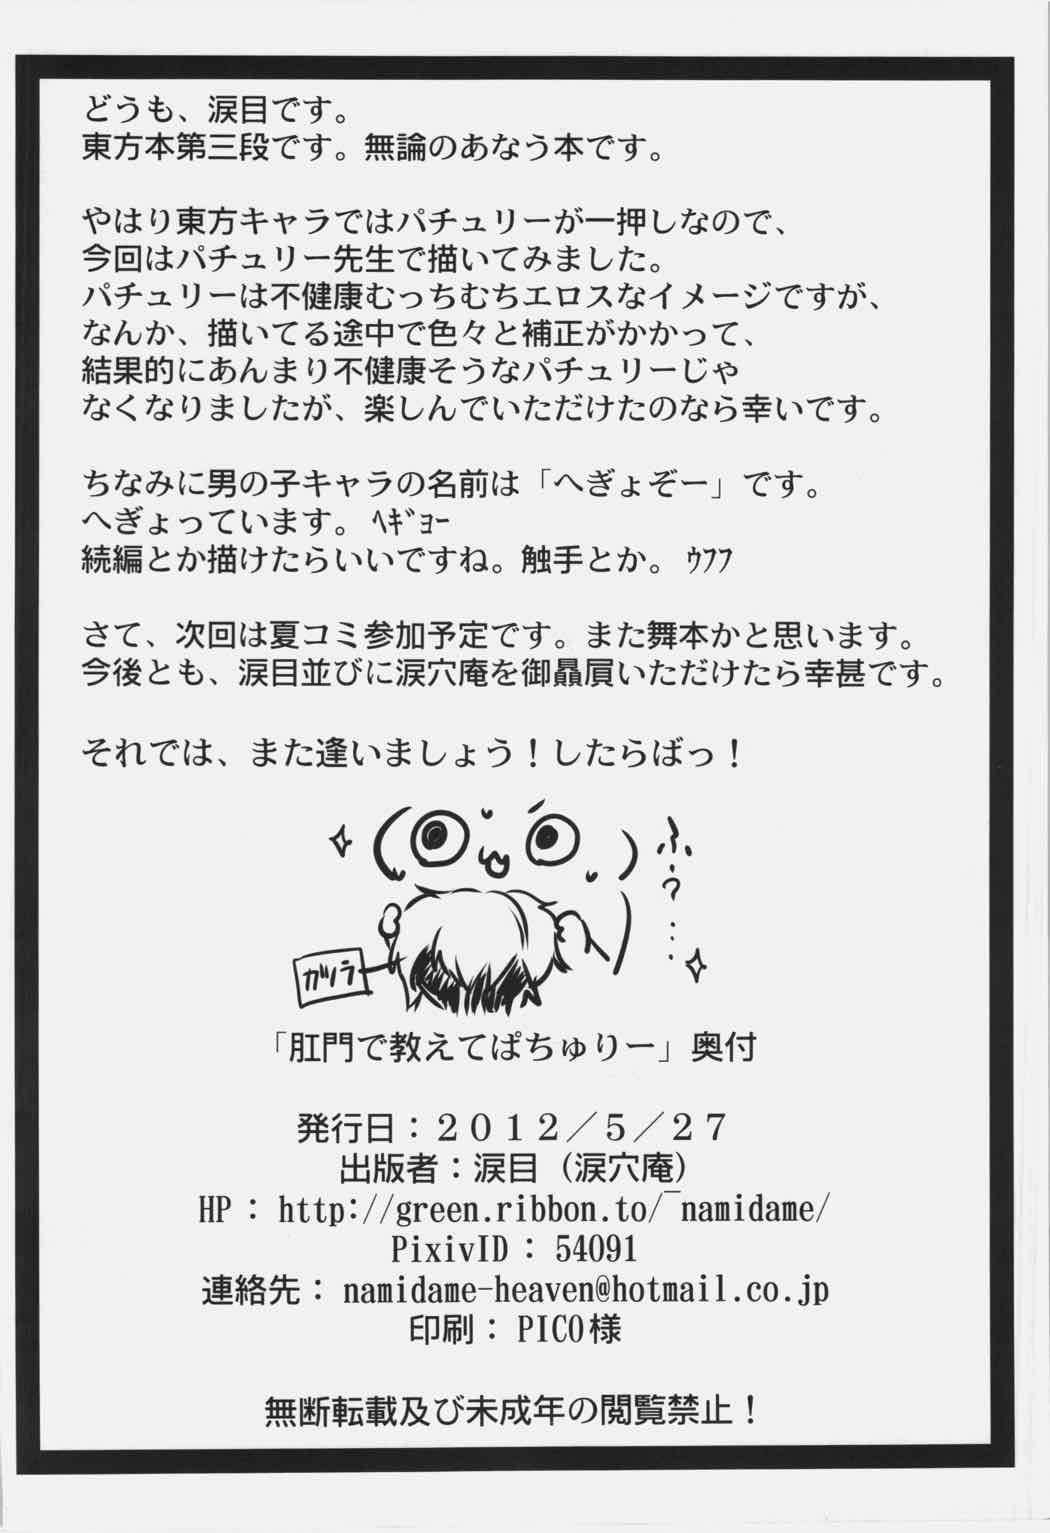 どうも、涙目です。
東方本第三段です。無論のあなう本です。
やはり東方キャラではパチュリーが一押しなので、
今回はパチュリー先生で描いてみました。
パチュリーは不健康むっちむちエロスなイメージですが、
なんか、描いてる途中で色々と補正がかかって、
結果的にあんまり不健康そうなパチュリーじゃ
なくなりましたが、楽しんでいただけたのなら幸いです。
ちなみに男の子キャラの名前は「へぎょぞー」です。
へぎょっています。ﾍｷﾞｮｰ
続編とか描けたらいいですね。触手とか。ｳﾌﾌ
さて、次回は夏コミ参加予定です。また舞本かと思います。
今後とも、涙目並びに涙穴庵を御贔屓いただけたら幸甚です。
それでは、また逢いましょう！したらばっ！
ふ、？……
ガソラ
「肛門で教えてぱちゅりー」奥付
発行日：２０１２／５／２７
出版者：涙目（涙穴庵）
HP： http://green.ribbon.to/‾namidame/
PixivID： 54091
連絡先： namidame-heaven@hotmail.co.jp
印刷： PICO様
無断転載及び未成年の閲覧禁止！